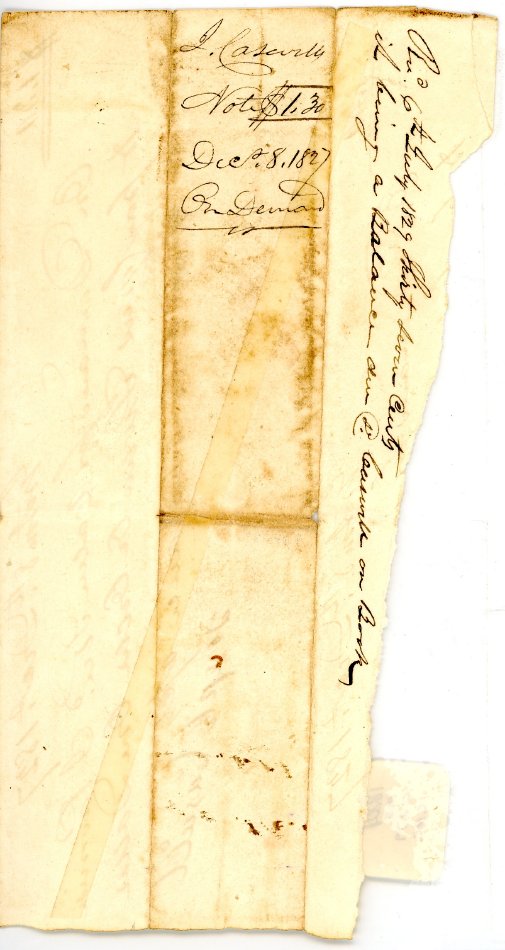 J. Caswells
Note $1.30
Decr. 8. 1827
On Demand
Recd. 6th July 1829 thirty seven Cents
it being a Balance due sd. Caswell on Book